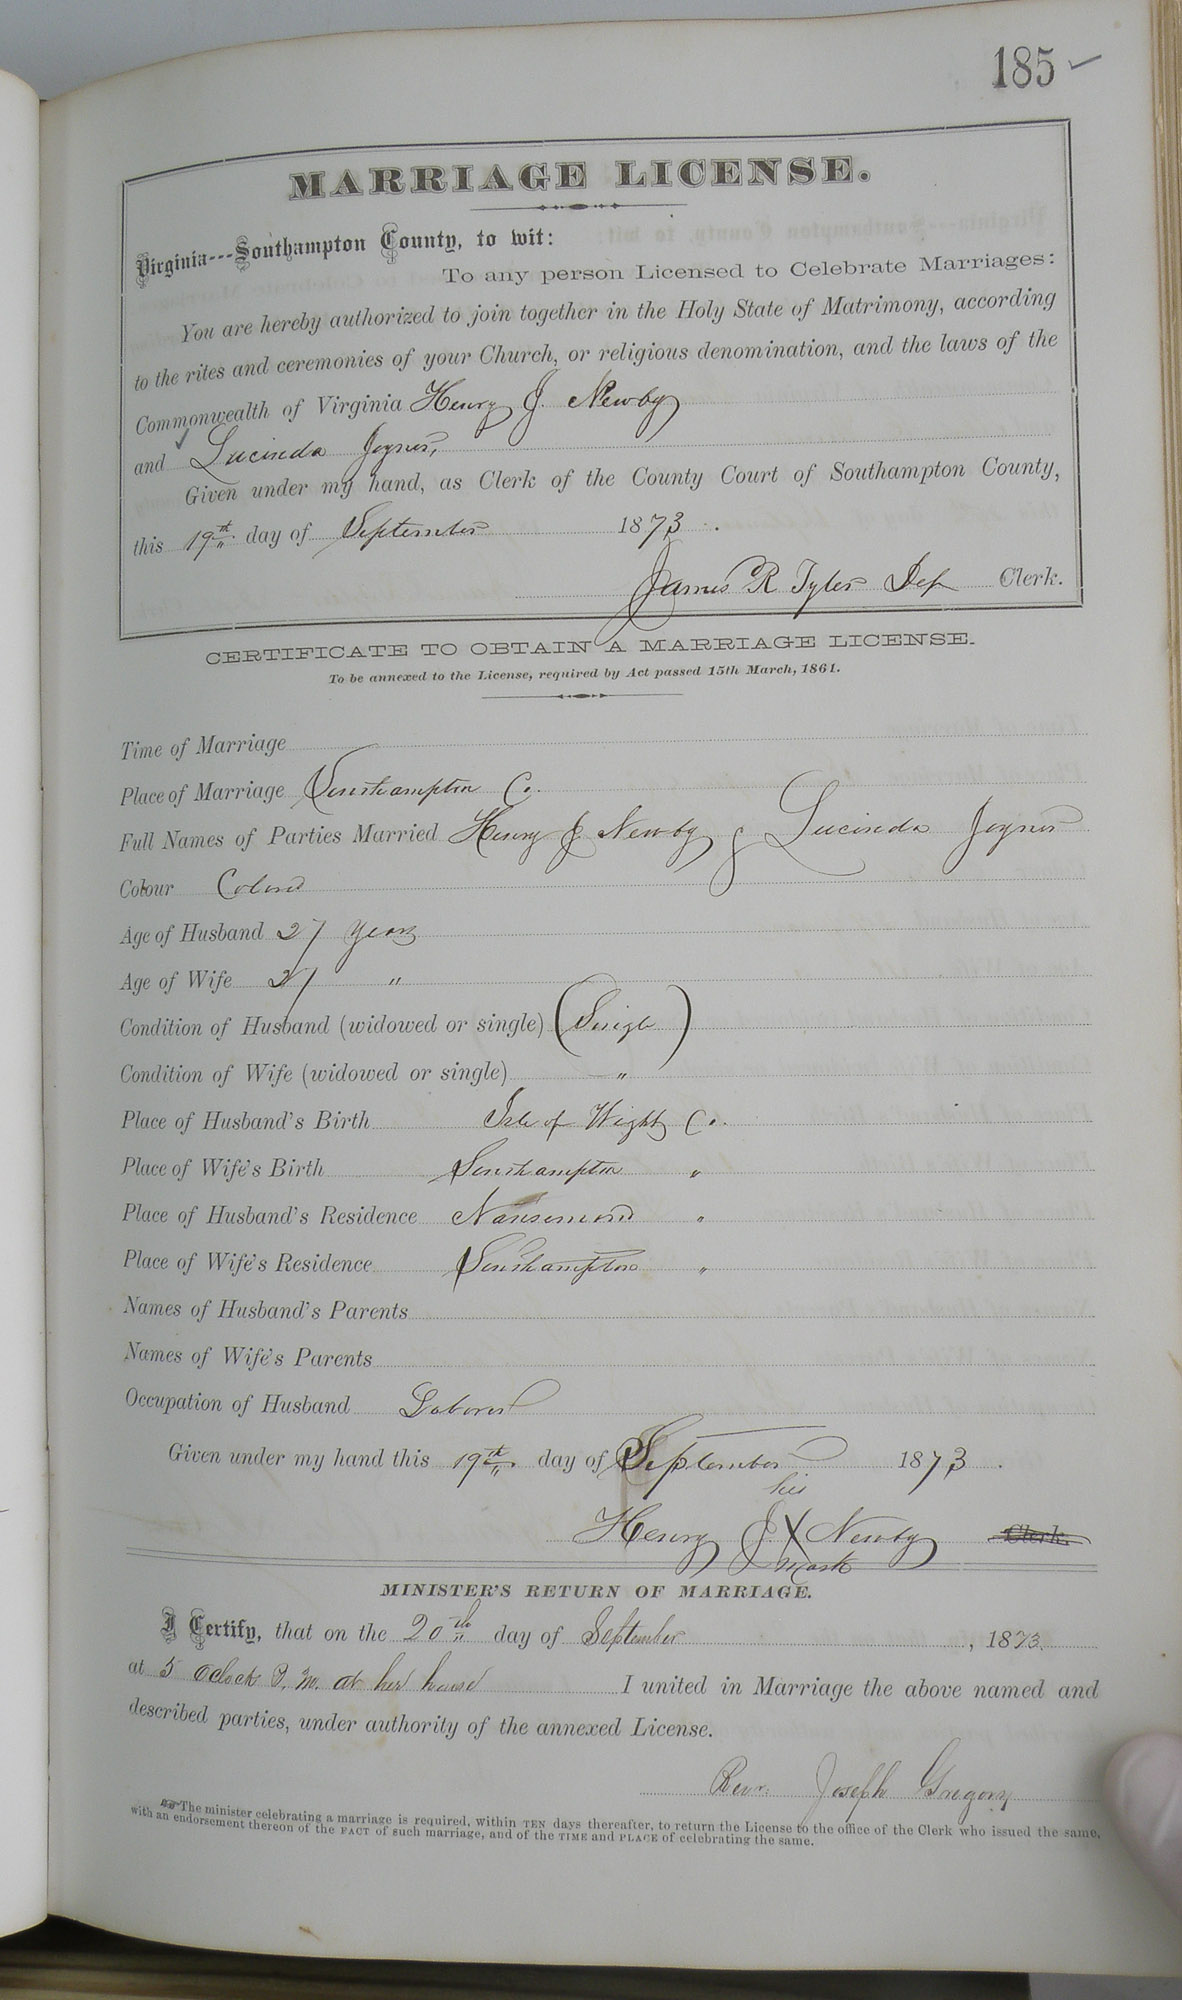 185 ✓
MARRIAGE LICENSE.
Virginia---Southampton County, to wit:
To any person Licensed to Celebrate Marriages:
You are hereby authorized to join together in the Holy State of Matrimony, according
to the rites and ceremonies of your Church, or religious denomination, and the laws of the
Commonwealth of Virginia Henry J. Newby
and ✓ Lucinda Joyner,
Given under my hand, as Clerk of the County Court of Southampton County,
this 19th day of September 1873.
James R Tyler Dep Clerk.
CERTIFICATE TO OBTAIN A MARRIAGE LICENSE.
To be annexed to the License, required by Act passed 15th March, 1861.
Time of Marriage
Place of Marriage Southampton Co.
Full Names of Parties Married Henry J Newby & Lucinda Joyner
Colour Colored
Age of Husband 27 Years
Age of Wife 27 "
Condition of Husband (widowed or single) (Single)
Condition of Wife (widowed or single) "
Place of Husband's Birth Isle of Wight Co.
Place of Wife's Birth Southampton "
Place of Husband's Residence Nansemond "
Place of Wife's Residence Southampton "
Names of Husband's Parents
Names of Wife's Parents
Occupation of Husband Laborer
Given under my hand this 19th day of September 1873.
his
Henry J. X Newby Clerk.
mark
MINISTER'S RETURN OF MARRIAGE.
I Certify, that on the 20th day of September, 1873.
at 5 oclock P. M. at her house I united in Marriage the above named and
described parties, under authority of the annexed License.
Revr. Joseph Gregory
The minister celebrating a marriage is required, within TEN days thereafter, to return the License to the office of the Clerk who issued the same,
with an endorsement thereon of the FACT of such marriage, and of the TIME and PLACE of celebrating the same.